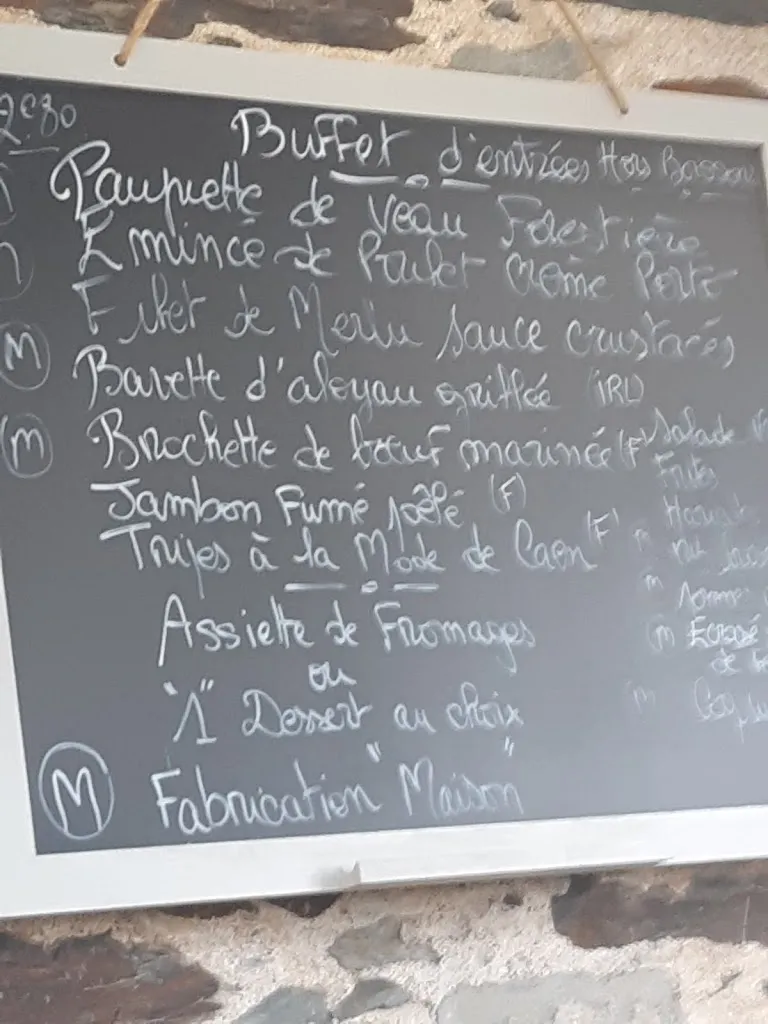 Buffet d'entrées Hors Boisson
Paupiette de Veau Forestière
Émincé de Poulet Crème Porto
Filet de Merlu sauce crustacés
M Bavette d'aloyau grillée (IRL)
M Brochette de bœuf marinée (F)
Jambon Fumé poêlé (F)
Tripes à la Mode de Caen (F)
Assiette de Fromages
ou
"1" Dessert au choix
M Fabrication "Maison"
Salade
Frites
m
m
m Ecrasé
de
m